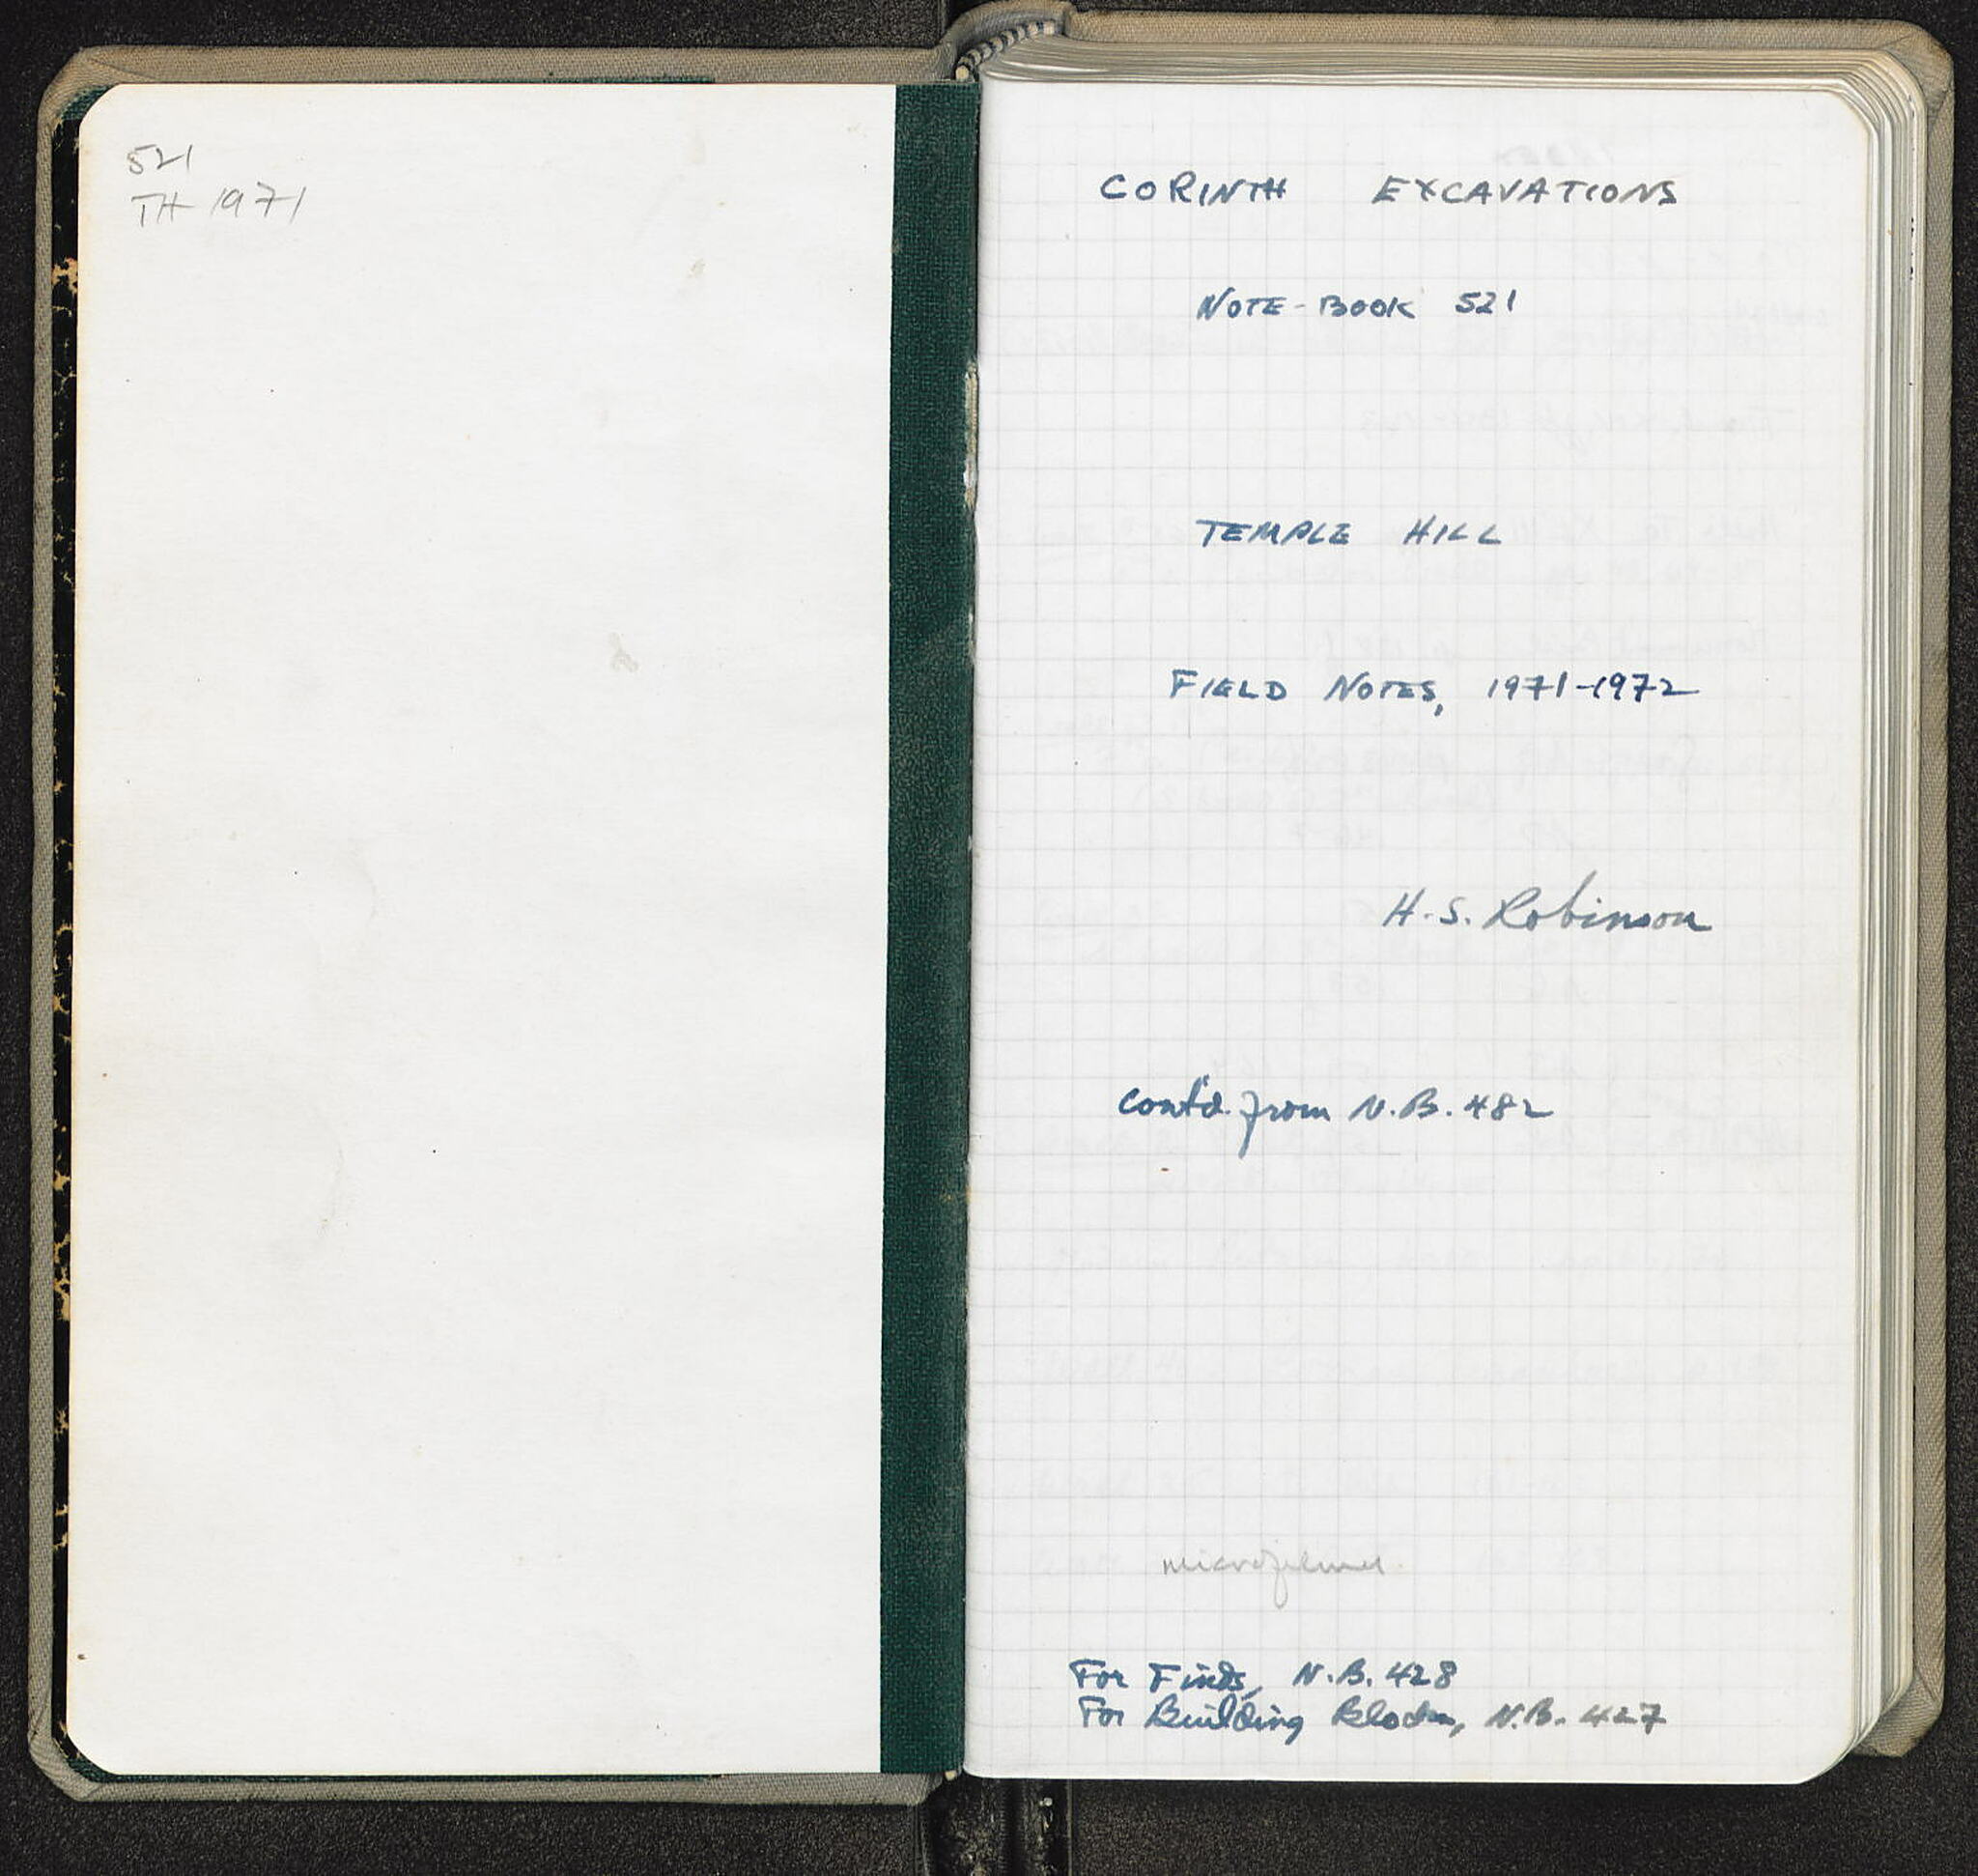 521
TH 1971
CORINTH EXCAVATIONS
NOTE-BOOK 521
TEMPLE HILL
FIELD NOTES, 1971-1972
H.S. Robinson
Cont'd. from N.B. 482
microfilmed
For Finds, N.B. 428
For Building Blocks, N.B. 427